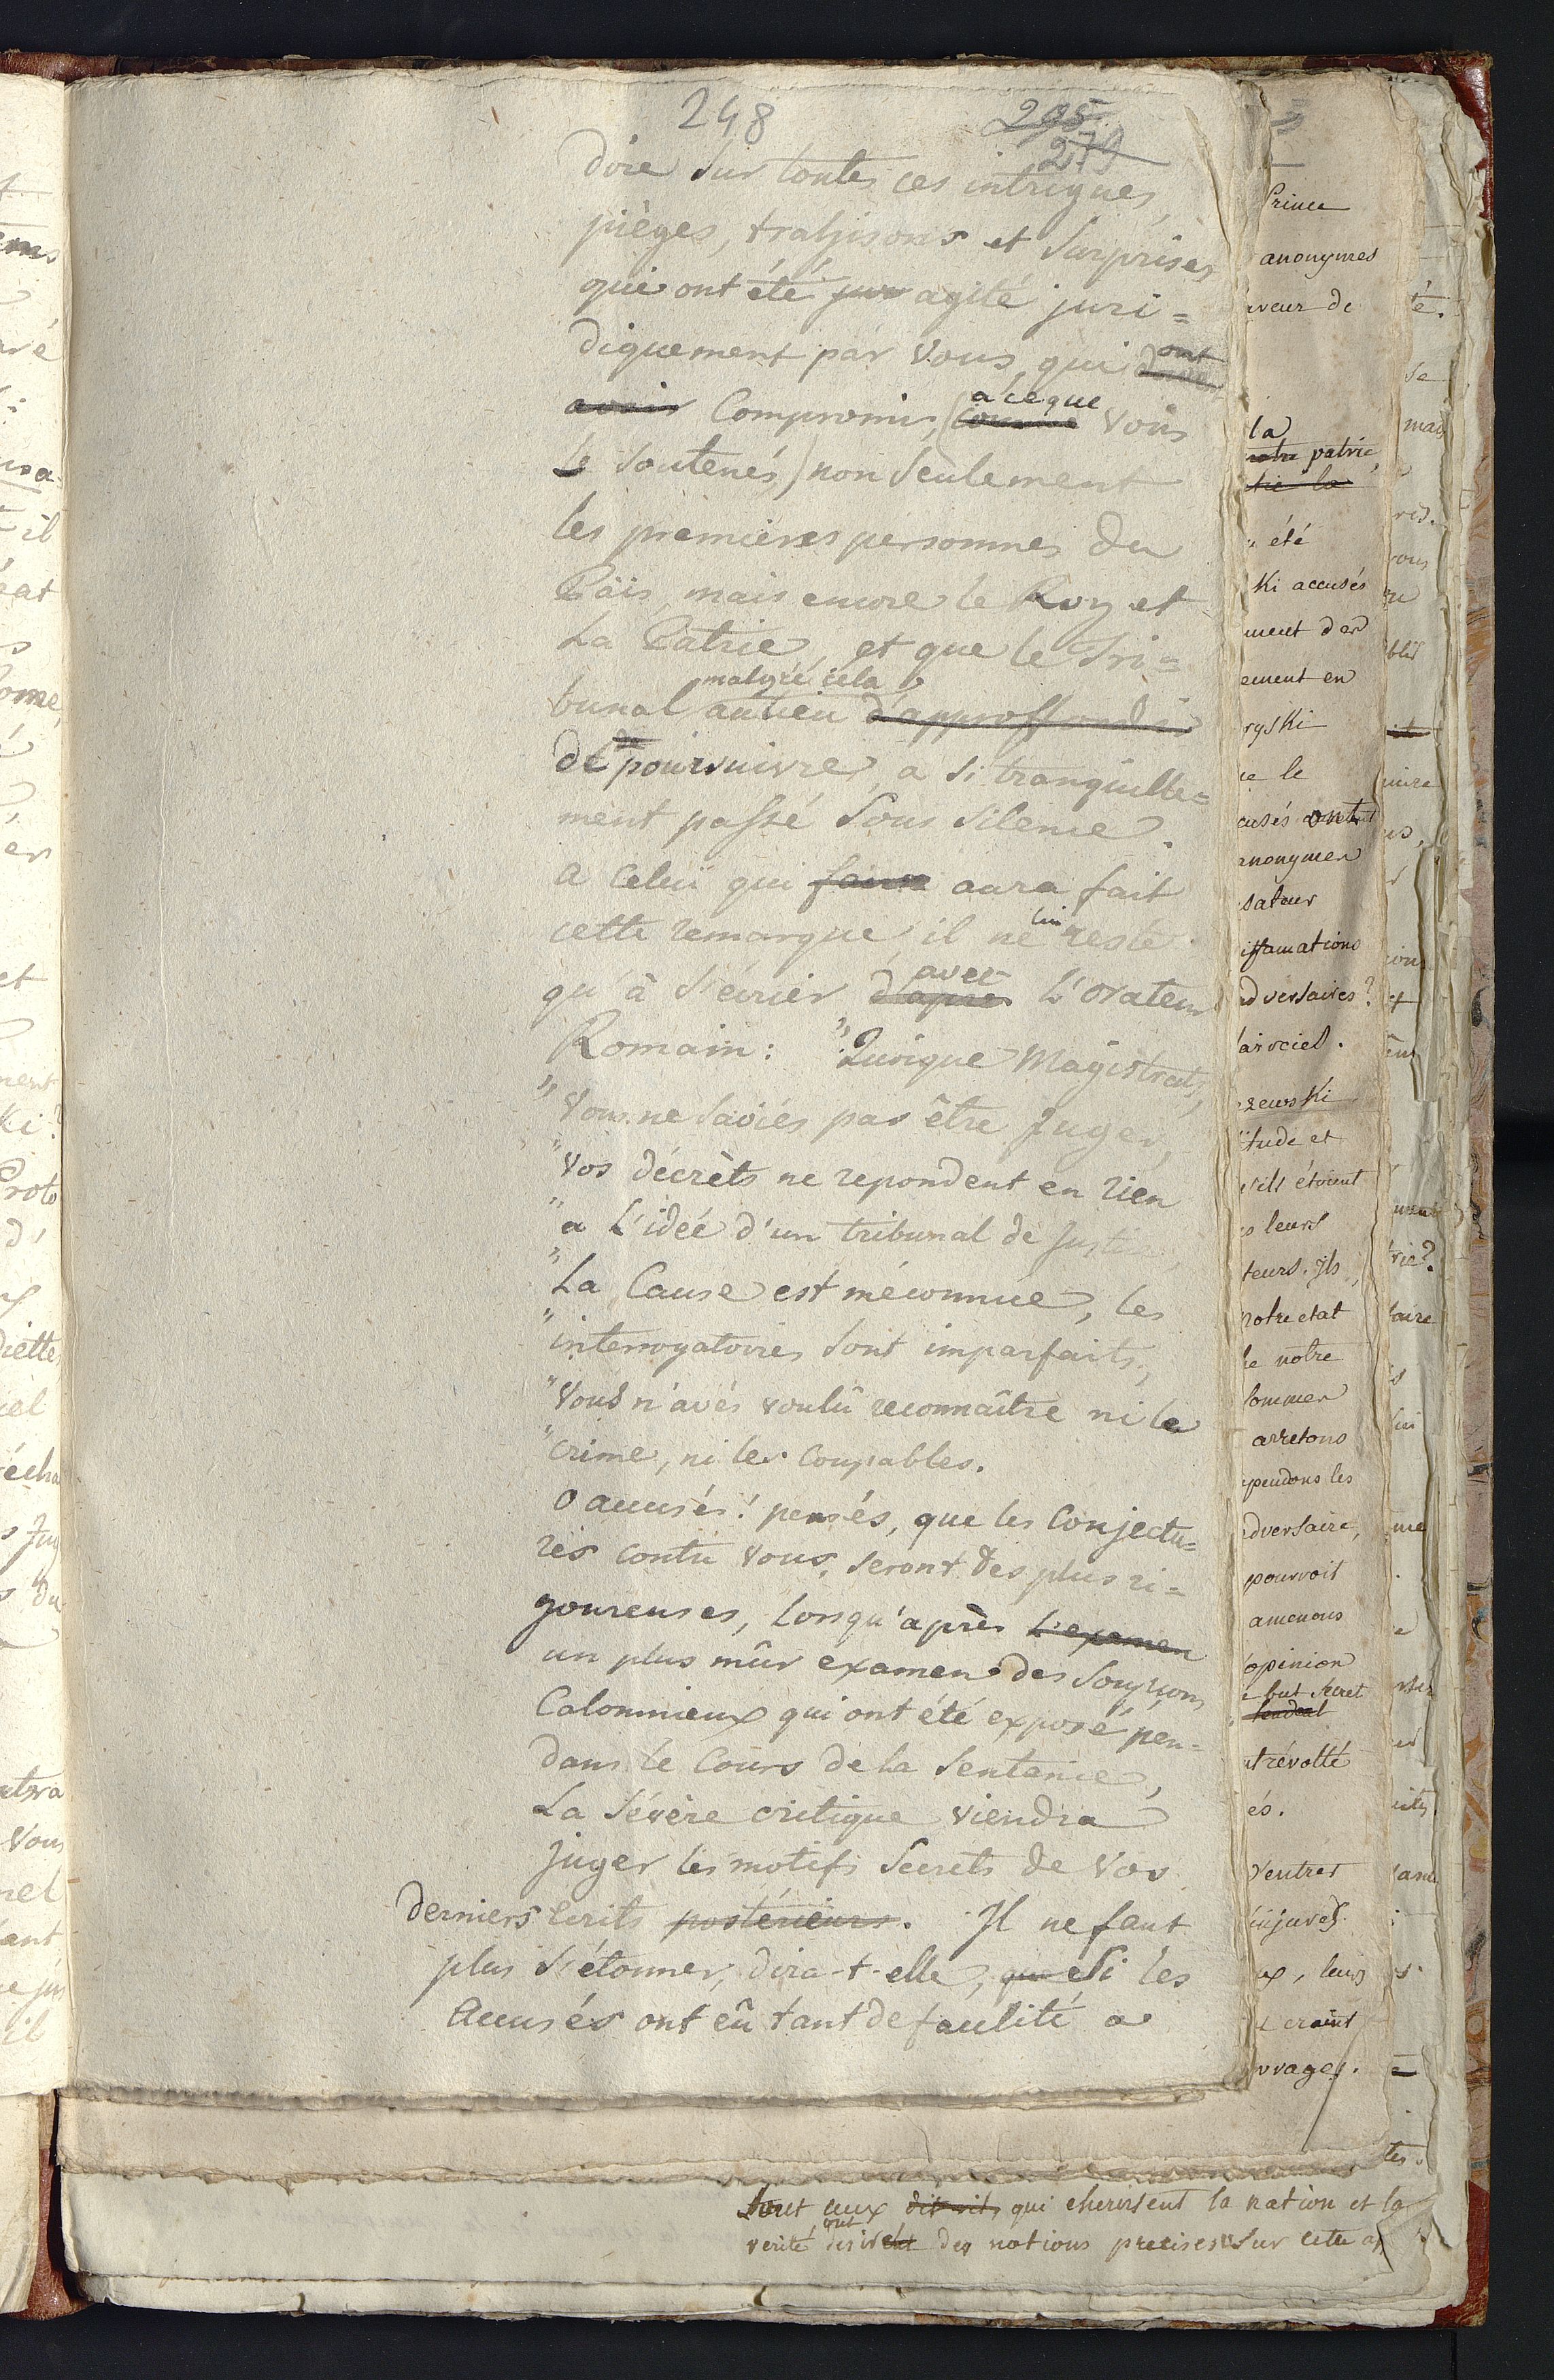 248 295
279
dire sur toutes ces intrigues,
pièges, trahisons et surprises,
qui ont été jur agité juri=
diquement par vous, qui ont
avoir compromis, (a ce que comme vous
le soutenés) non seulement
les premières personnes du
Païs, mais encore le Roy et
La Patrie, et que le Tri=
bunal malgré cela, aulieu d'approffondir
de poursuivre, a si tranquille=
ment passé sous silence.
a celui qui aura fait
cette remarque, il ne lui reste
qu'à s'écrier d'après avec L'orateur
Romain: "Quoique Magistrats,
"vous ne saviés pas être Juges,
"vos décrèts ne repondent en rien
"a L'ideé d'un tribunal de Justice,
"La Cause est méconnue, les
"interrogatoires sont imparfaits,
"vous n'avés voulû reconnaître ni le
"crime, ni les coupables.
O accusés! pensés, que les Conjectu=
res contre vous, seront des plus ri=
goureuses, lorsqu'après L'examen
un plus mûr examen des soupçons
Calomnieux qui ont été exposé pen=
dans le Cours de la Sentence,
La sévère critique viendra
juger les motifs secrets de vos
derniers ecrits postérieurs. Il ne faut
plus s'étonner, dira-t-elle, que si les
Accusés ont eû tant de facilité a
Prince
anonymes
aveur de
la
notre patrie,
été
ki accusés
ment d'er
ement en
ryski
ue le
cusés
anonymes
sateur
iffamations
adversaires?
zewski
itude et
s'ils étoient
s leurs
teurs. Ils
notre etat
de notre
sommer
arretons
spendons les
adversaire,
pourroit
amenons
opinion
e but secret
tendent
ntrévolté
és.
d'entrer
injures.
ux, leurs
craint
uvrages.
ceux qui cherissent la nation et la
verité, ont des notions precises sur cette